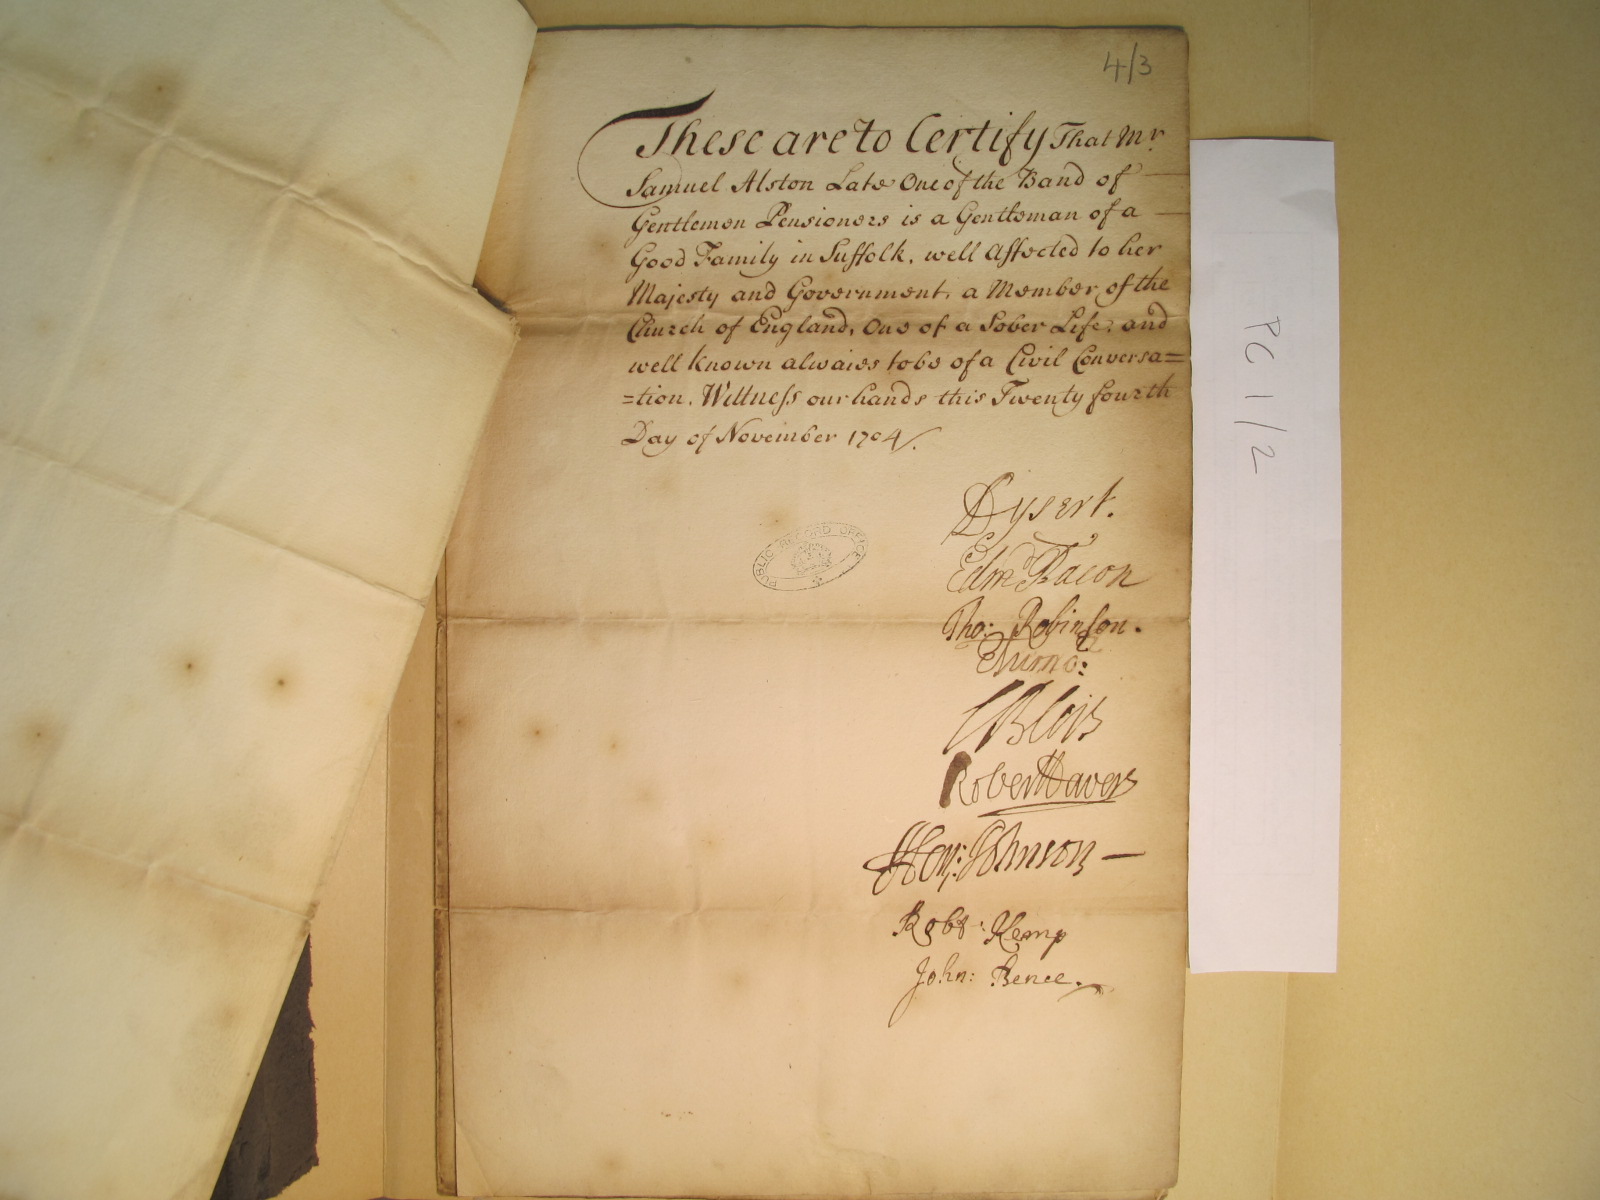 4/3
These are to Certify That Mr.
Samuel Alston Late One of the Band of
Gentlemen Pensioners is a Gentleman of a
Good Family in Suffolk, well Affected to her
Majesty and Government, a Member of the
Church of England, One of a Sober Life, and
well known alwaies to be of a Civil Conversa=
=tion. Wittness our hands this Twenty fourth
Day of November 1704/.
Dysert.
Edmd Bacon
Tho: Robinson.
CBlois
Robert Davers
Hen: Johnson
Robt: Kemp
John: Bence.
PUBLIC RECORD OFFICE
PC 1/2